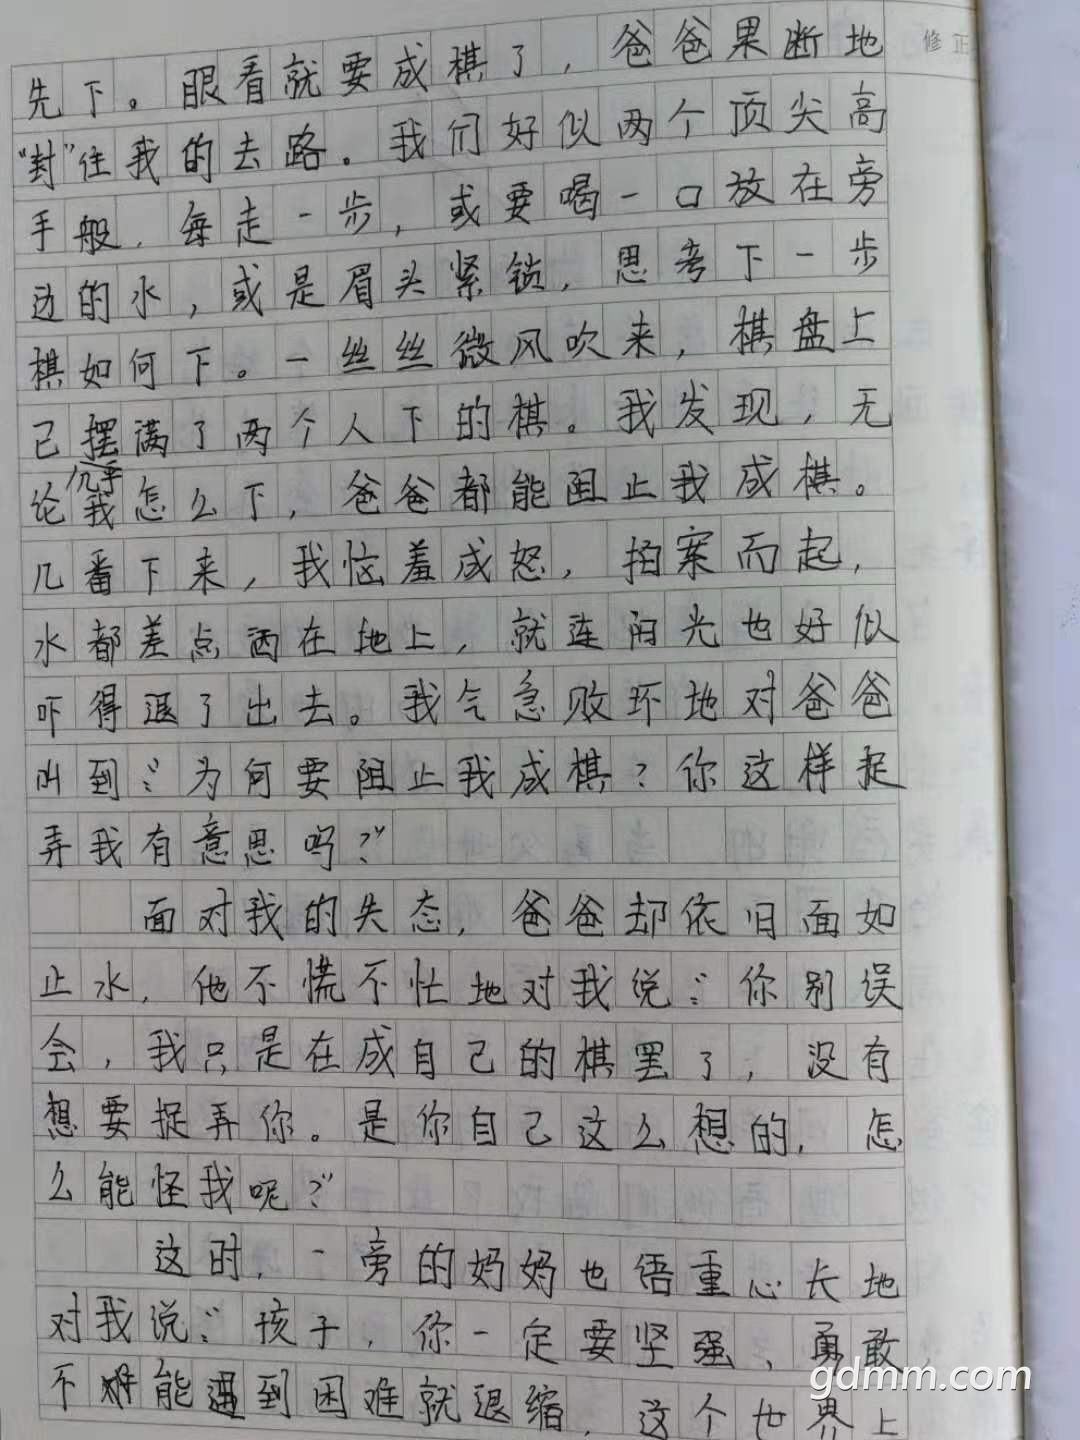 修正
先下。眼看就要成棋了，爸爸果断地
“封”住我的去路。我们好似两个顶尖高
手般，每走一步，或要喝一口放在旁
边的水，或是眉头紧锁，思考下一步
棋如何下。一丝丝微风吹来，棋盘上
已摆满了两个人下的棋。我发现，无
几乎
论我怎么下，爸爸都能阻止我成棋。
几番下来，我恼羞成怒，拍案而起，
水都差点洒在地上，就连阳光也好似
吓得退了出去。我气急败坏地对爸爸
叫到：“为何要阻止我成棋？你这样捉
弄我有意思吗？”
面对我的失态，爸爸却依旧面如
止水，他不慌不忙地对我说：“你别误
会，我只是在成自己的棋罢了，没有
想要捉弄你。是你自己这么想的，怎
么能怪我呢？”
这时，一旁的妈妈也语重心长地
对我说：“孩子，你一定要坚强、勇敢
不能遇到困难就退缩，这个世界上
gdmm.com